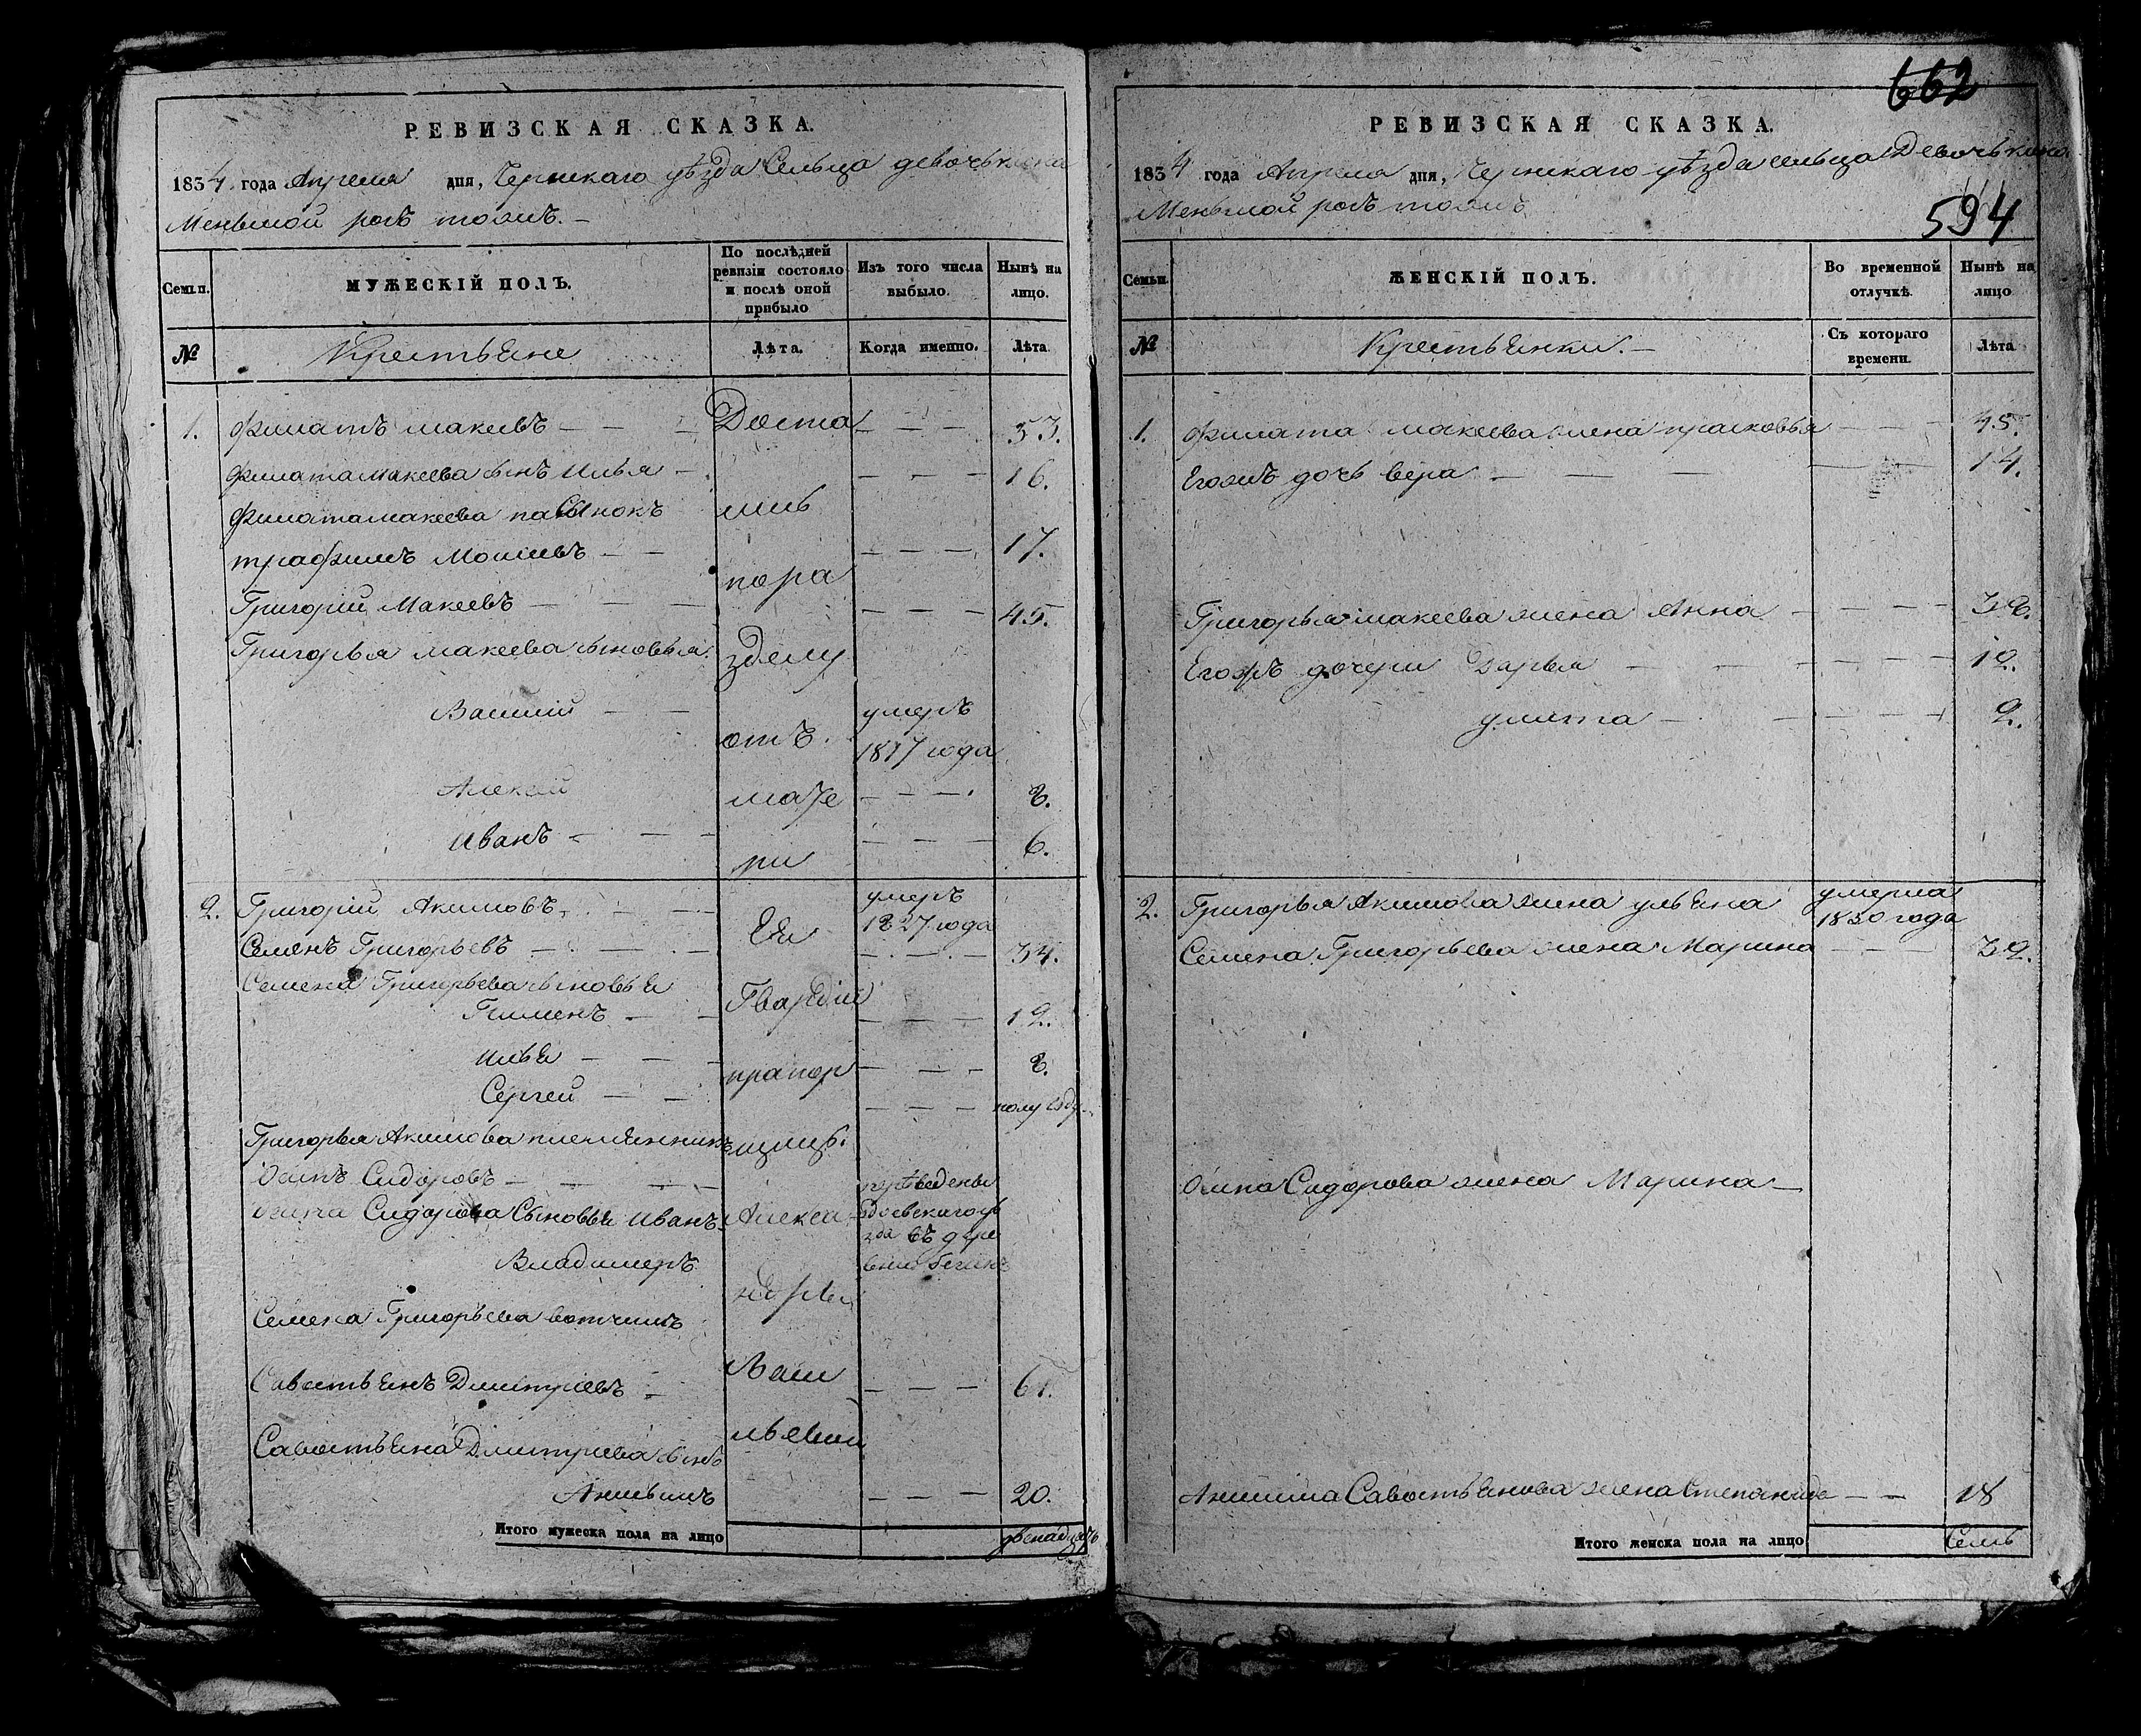 РЕВИЗСКАЯ СКАЗКА.
1834 года Апреля дня, Чернскаго уѣзда Сельца девочькина
Меньшой рогъ тожъ. –
Семьи. МУЖЕСКІЙ ПОЛЪ. По послѣдней ревизіи состояло и послѣ оной прибыло Изъ того числа выбыло. Нынѣ на лицо.
№ Крестьяне Лѣта. Когда именно. Лѣта
1. Филатъ макеевъ – – – Доста – – – 53.
Филата Макеева сынъ Илья – – – – 16.
Филата макеева пасынокъ лись
трафимъ Мосиевъ – – – – – 17.
пора
Григорий Макеевъ – – – – – – 45.
Григорья макеева сыновья. зделу
Василий – – умеръ
отъ. 1817 года
Алексей мате – – – 8.
Иванъ – – – – – – 6.
ри
2. Григорій Акимовъ. – – – Ея умеръ 1827 года
Семенъ Григорьевъ – – – – – – – 34.
Семена Григорьева сыновья Гвардии
Пименъ – – – – – 12.
Илья – – – прапор – – – 8.
Сергей – – – – – полу году
Григорья Акимова племянникъ щицы.
Осипъ Сидоровъ – – – – переведены
Осипа Сидорова Сыновья Иванъ Алекса
зда въ дере
Владимеръ вню
ндры
Семена Григорьева вотчимъ
Васи
Савостьянъ Дмитриевъ – – – – 61.
льевны
Савостьяна Дмитриева сынъ
Анисимъ – – – 20.
Итого мужеска пола на лицо двенадцеть
662
РЕВИЗСКАЯ СКАЗКА.
1834 года Апреля дня, Чернскаго уѣзда сельца Девочькина
Меньшой рогъ тожъ
594
Семьи. ЖЕНСКІЙ ПОЛЪ. Во временной отлучкѣ. Нынѣ на лицо
№ Крестьянки. – Съ котораго времени. Лѣта
1. Филата макеева жена прасковья – – – 45.
Егожъ дочь вера – – – – – 14.
Григорья макеева жена Анна – – – – 38.
Егожъ дочери Дарья – – – – – – – 12.
улита – – – – – 2.
2. Григорья Акимова жена ульяна умерла 1830 года
Семена Григорьева жена Марина – – 32.
Осипа Сидорова жена Марина –
Анисима Савостьянова жена Степанида – – 18
Итого женска пола на лицо Семь